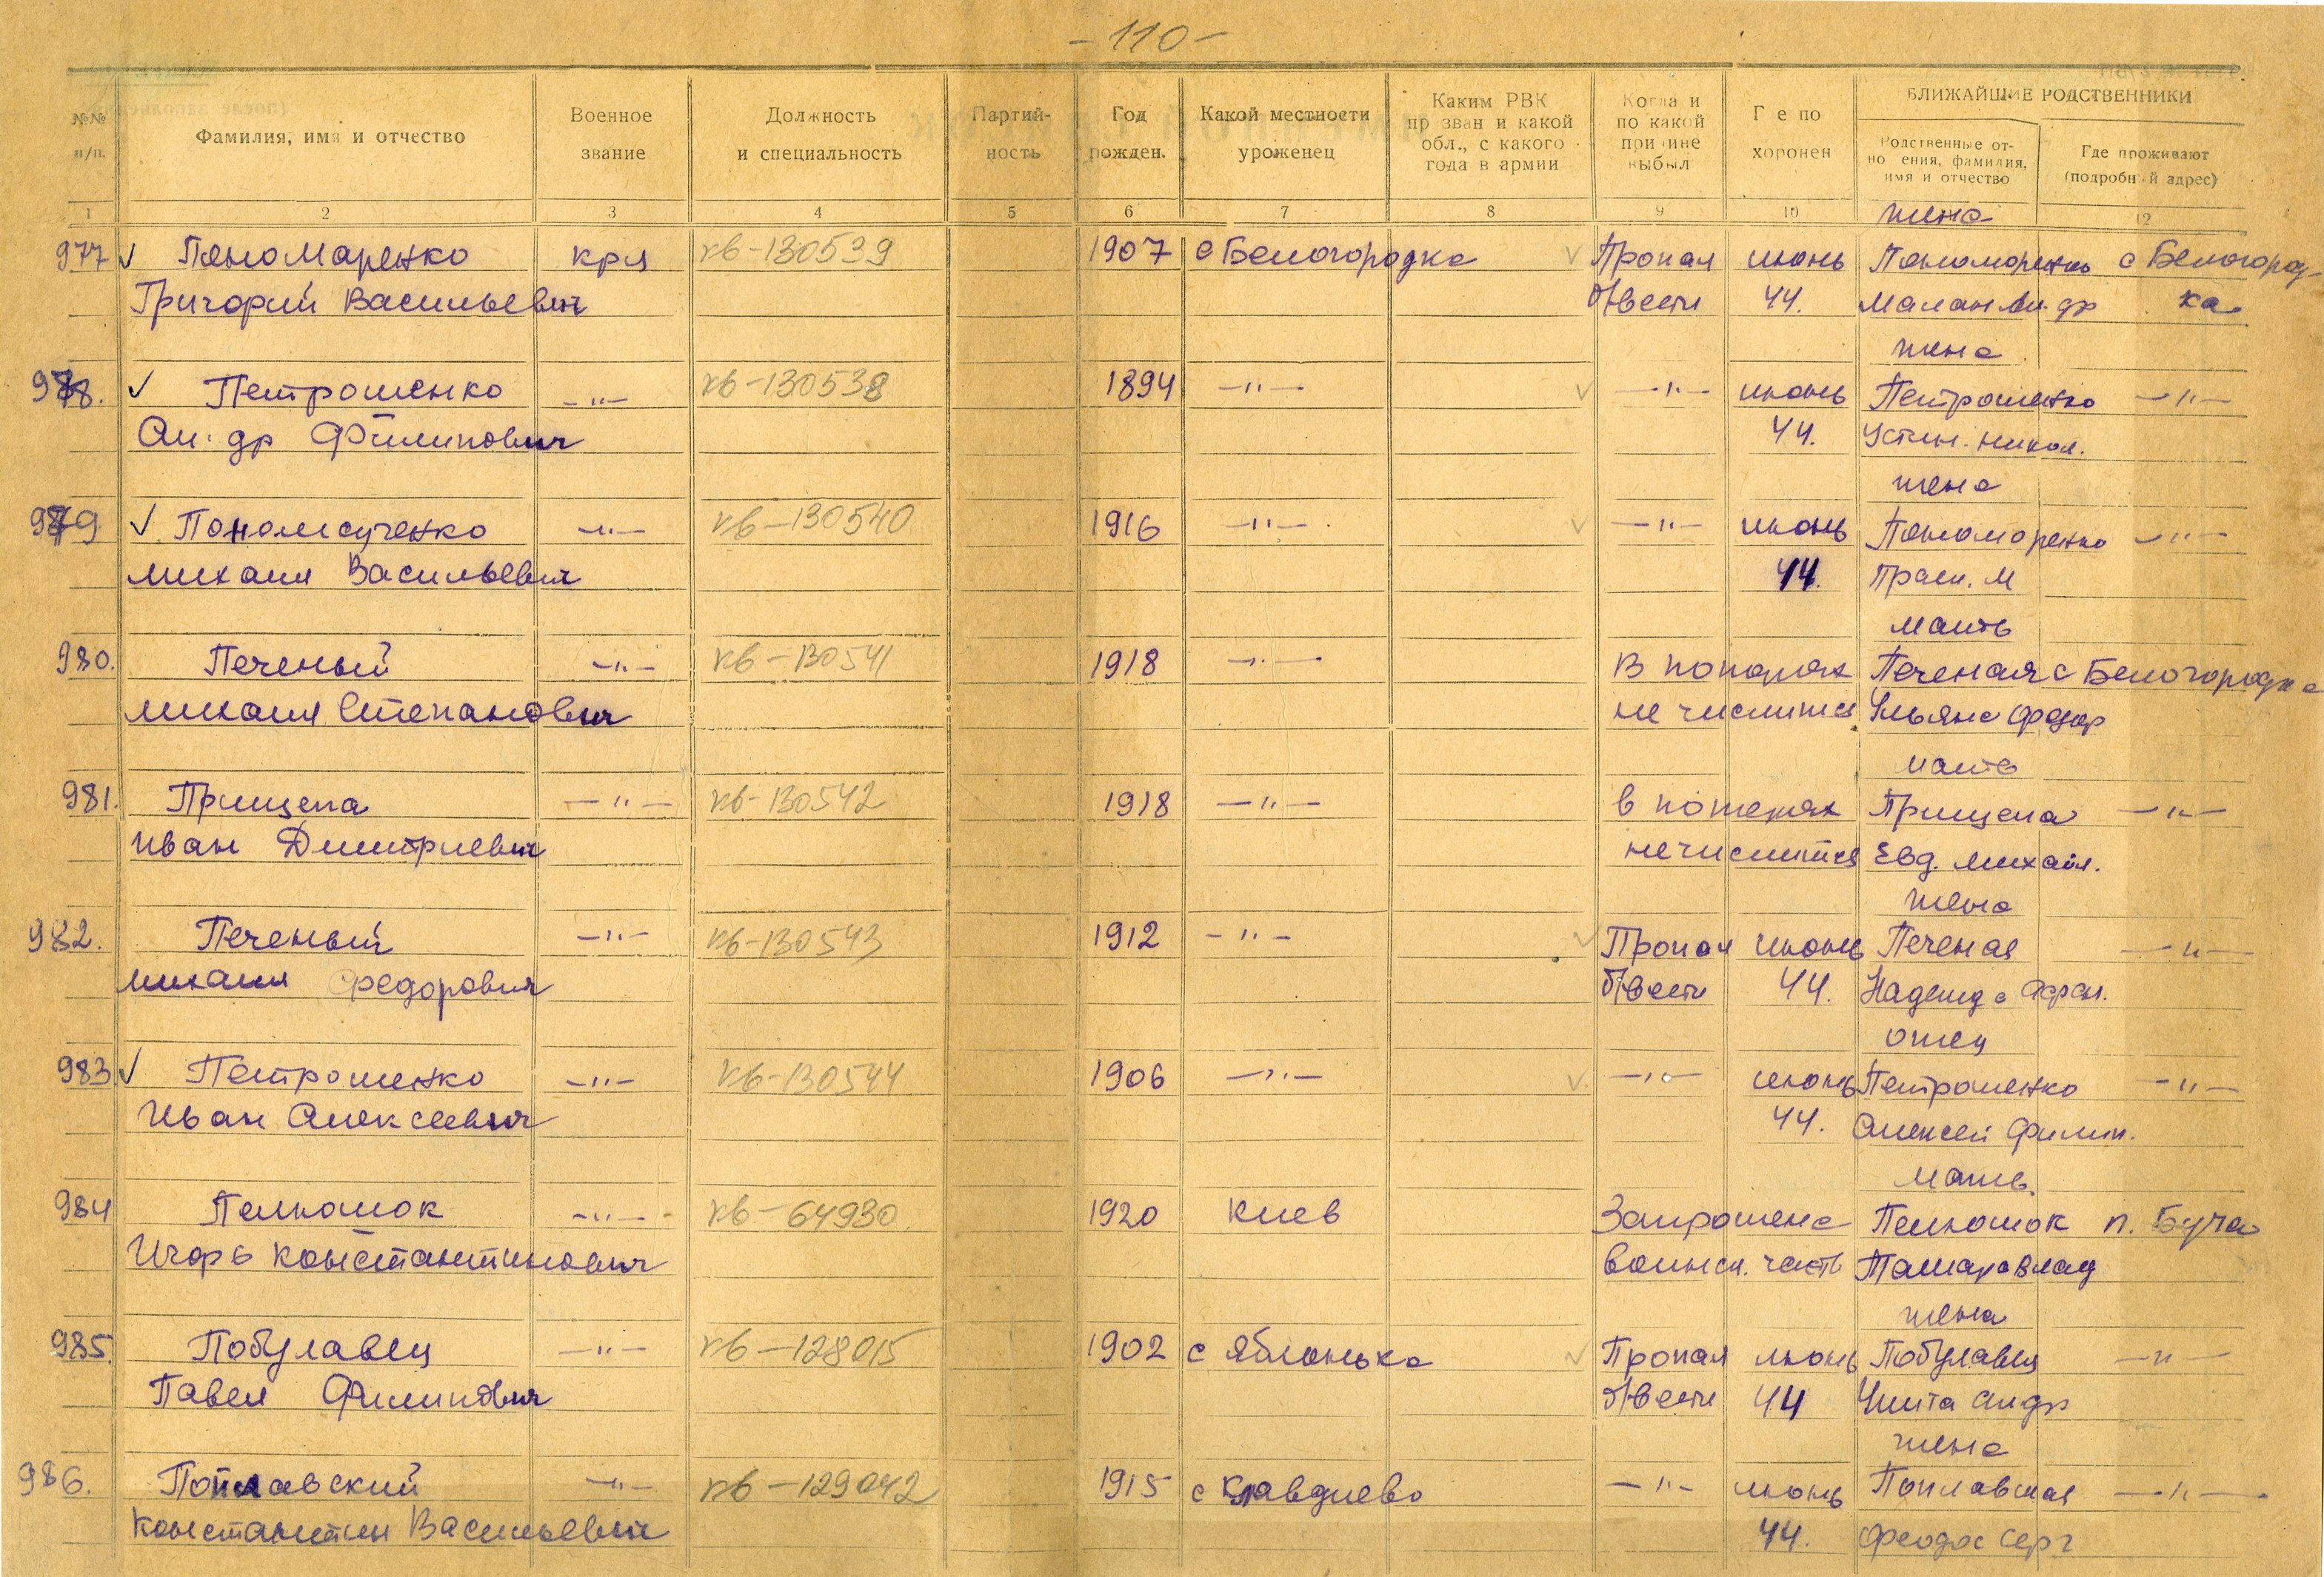 - 110 -
№№ п/п.
Фамилия, имя и отчество
Военное звание
Должность и специальность
Партий-ность
Год рожден.
Какой местности уроженец
Каким РВК призван и какой обл., с какого года в армии
Когда и по какой причине выбыл
Где похоронен
БЛИЖАЙШИЕ РОДСТВЕННИКИ
Родственные отношения, фамилия, имя и отчество
Где проживают (подробный адрес)
1 2 3 4 5 6 7 8 9 10 12
жена
977 ✓ Пономаренко кря кв-130539 1907 с Белогородка ✓ Пропал июнь Пономаренко с Белогород-
Григорий Васильевич б/вести 44. Малан Ан.др ка
жена
978. ✓ Петрошенко —"— кв-130538 1894 —"— ✓ —"— июнь Петрошенко —"—
Ал.др Филипович 44. Устин. Никол.
жена
979 ✓ Пономаренко —"— кв-130540 1916 —"— ✓ —"— июнь Пономоренко —"—
Михаил Васильевич 44. Праск. М
мать
980. Печеный —"— кв-130541 1918 —"— В потерях Печеная с Белогородка
Михаил Степанович не числится Ульяна Федор
мать
981. Прищепа —"— кв-130542 1918 —"— в потерях Прищепа —"—
Иван Дмитриевич не числится Евд. Михайл.
жена
982. Печеный —"— кв-130543 1912 —"— ✓ Пропал июнь Печеная —"—
Михаил Федорович б/вести 44. Надежда Афан.
отец
983 ✓ Петрошенко —"— кв-130544 1906 —"— ✓ —"— июнь Петрошенко —"—
Иван Алексеевич 44. Алексей Филип.
мать.
984 Пелюшок —"— кв-64930 1920 Киев Запрошена Пелюшок п. Буча
Игорь Константинович воинск. часть Тамара Влад
жена
985. Побулавец —"— кв-128015 1902 с Яблонька ✓ Пропал июнь Побулавец —"—
Павел Филипович б/вести 44 Анд
жена
986. Поплавский —"— кв-129042 1915 с Клавдиево —"— июнь Поплавская —"—
Константин Васильевич 44. Феодос Серг